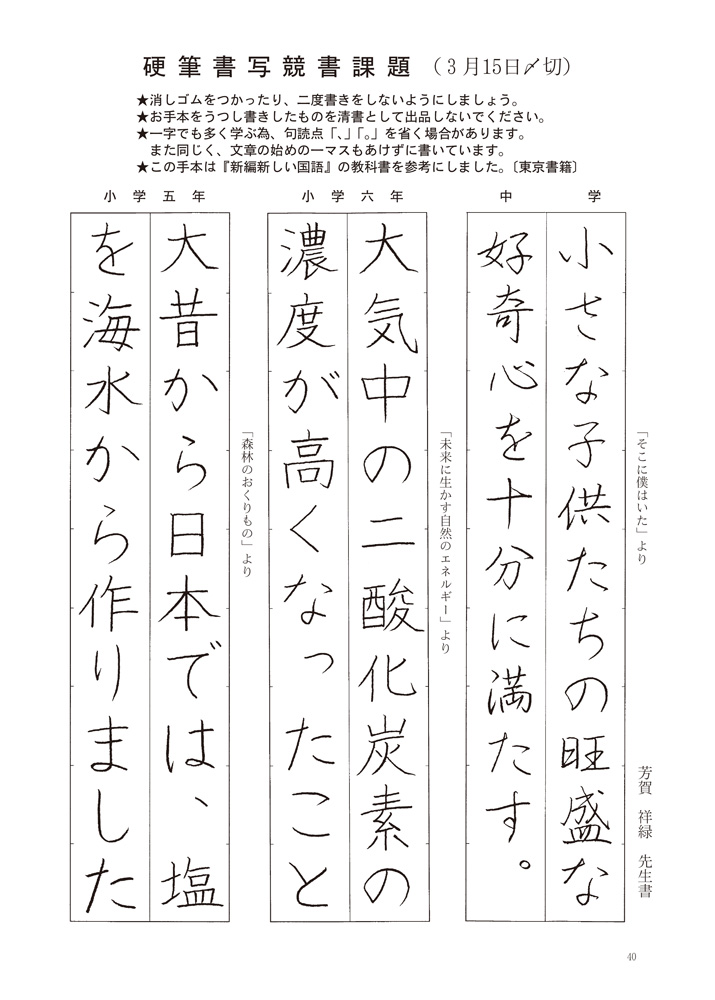 硬筆書写競書課題（3月15日〆切）
★消しゴムをつかったり、二度書きをしないようにしましょう。
★お手本をうつし書きしたものを清書として出品しないでください。
★一字でも多く学ぶ為、句読点「、」「。」を省く場合があります。
また同じく、文章の始めの一マスもあけずに書いています。
★この手本は『新編新しい国語』の教科書を参考にしました。〔東京書籍〕
中学
「そこに僕はいた」より
芳賀 祥緑 先生書
小さな子供たちの旺盛な
好奇心を十分に満たす。
小学六年
「未来に生かす自然のエネルギー」より
大気中の二酸化炭素の
濃度が高くなったこと
小学五年
「森林のおくりもの」より
大昔から日本では、塩
を海水から作りました
40